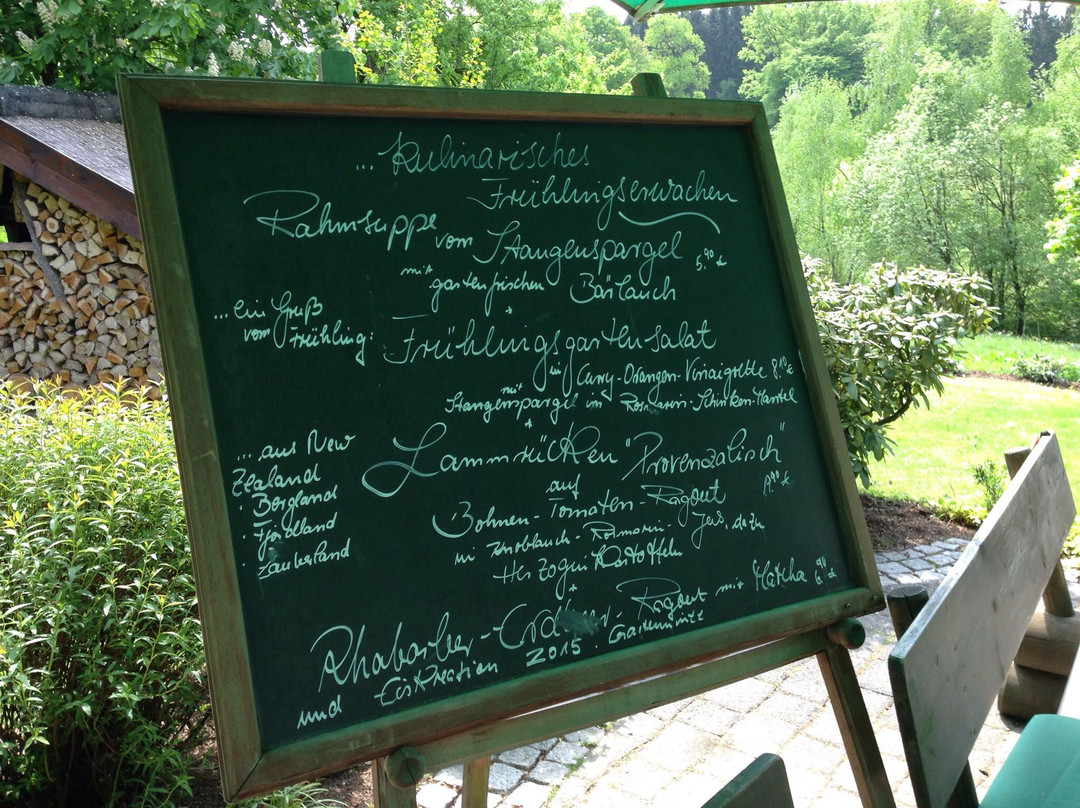 ... Kulinarisches
Frühlingserwachen
Rahmsuppe vom Stangenspargel 5.90 €
mit gartenfrischem Bärlauch
... ein Gruß
vom Frühling:
Frühlingsgartensalat
in Curry-Orangen-Vinaigrette 8.10 €
mit Stangenspargel im Rosmarin-Schinken-Mantel
... aus New
Zealand
· Bergland
· Fjordland
· Zauberland
Lammrücken "Provenzalisch"
auf
Bohnen-Tomaten-Ragout
in Knoblauch-Rosmarin- dazu
Herzogin Kartoffeln
Rhabarber- -Ragout mit Matcha
und Eiskreation 2015. Gartenminze